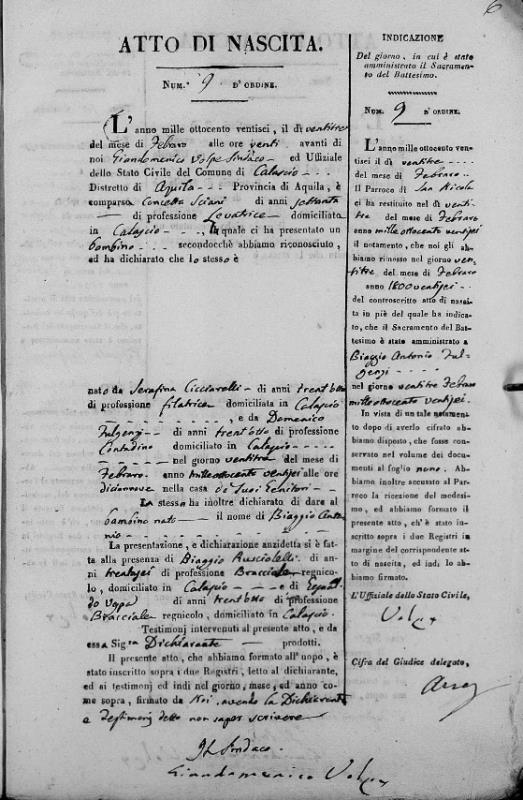 6
ATTO DI NASCITA.
NUM. 9 D'ORDINE.
L'anno mille ottocento ventisei, il dì ventitre
del mese di Febraro alle ore venti avanti di
noi Giandomenico Volpe Sindaco ed Uffiziale
dello Stato Civile del Comune di Calascio
Distretto di Aquila Provincia di Aquila, è
comparsa Concetta Sciani di anni settanta
di professione Levatrice domiciliata
in Calascio, la quale ci ha presentato un
bambino secondocchè abbiamo riconosciuto,
ed ha dichiarato che lo stesso è
nato da Serafina Cicciarelli di anni trent'otto
di professione filatrice domiciliata in Calascio
e da Domenico
Fulgenzi di anni trent'otto di professione
Contadino domiciliato in Calascio
nel giorno ventitre del mese di
Febraro anno mille ottocento ventisei alle ore
diciannove nella casa de' suoi Genitori
La stessa ha inoltre dichiarato di dare al
bambino nato il nome di Biaggio Anto
nio
La presentazione, e dichiarazione anzidetta si è fat-
ta alla presenza di Biaggio Rusciolelli di an-
ni trentasei di professione Bracciale regnico-
lo, domiciliato in Calascio e di
do di anni trent'otto di professione
Bracciale regnicolo, domiciliato in Calascio.
Testimonj intervenuti al presente atto, e da
essa Sig.ra Dichiarante prodotti.
Il presente atto, che abbiamo formato all'uopo, è
stato inscritto sopra i due Registri, letto al dichiarante,
ed ai testimonj ed indi nel giorno, mese, ed anno co-
me sopra, firmato da Noi, avendo la Dichiarante
e Testimonj detto non saper scrivere
Il Sindaco.
Giandomenico Volpe
INDICAZIONE
Del giorno, in cui è stato
amministrato il Sacramen-
to del Battesimo.
NUM. 9 D'ORDINE.
L'anno mille ottocento ven-
tisei il dì ventitre
del mese di Febraro
Il Parroco di San Nicola
ci ha restituito nel dì venti
tre del mese di Febraro
anno mille ottocento ventisei
il notamento, che noi gli ab-
biamo rimesso nel giorno ven
titre del mese di Febraro
anno 1800 ventisei
del controscritto atto di nasci-
ta in piè del quale ha indica-
to, che il Sacramento del Bat-
tesimo è stato amministrato a
Biaggio Antonio Ful-
genzi
nel giorno ventitre Febraro
mille ottocento ventisei.
In vista di un tale notamento
dopo di averlo cifrato ab-
biamo disposto, che fosse con-
servato nel volume dei docu-
menti al foglio nono. Ab-
biamo inoltre accusato al Par-
roco la ricezione del medesi-
mo, ed abbiamo formato il
presente atto, ch'è stato in-
scritto sopra i due Registri in
margine del corrispondente at-
to di nascita, ed indi lo ab-
biamo firmato.
L'Uffiziale dello Stato Civile,
Volpe
Cifra del Giudice delegato,